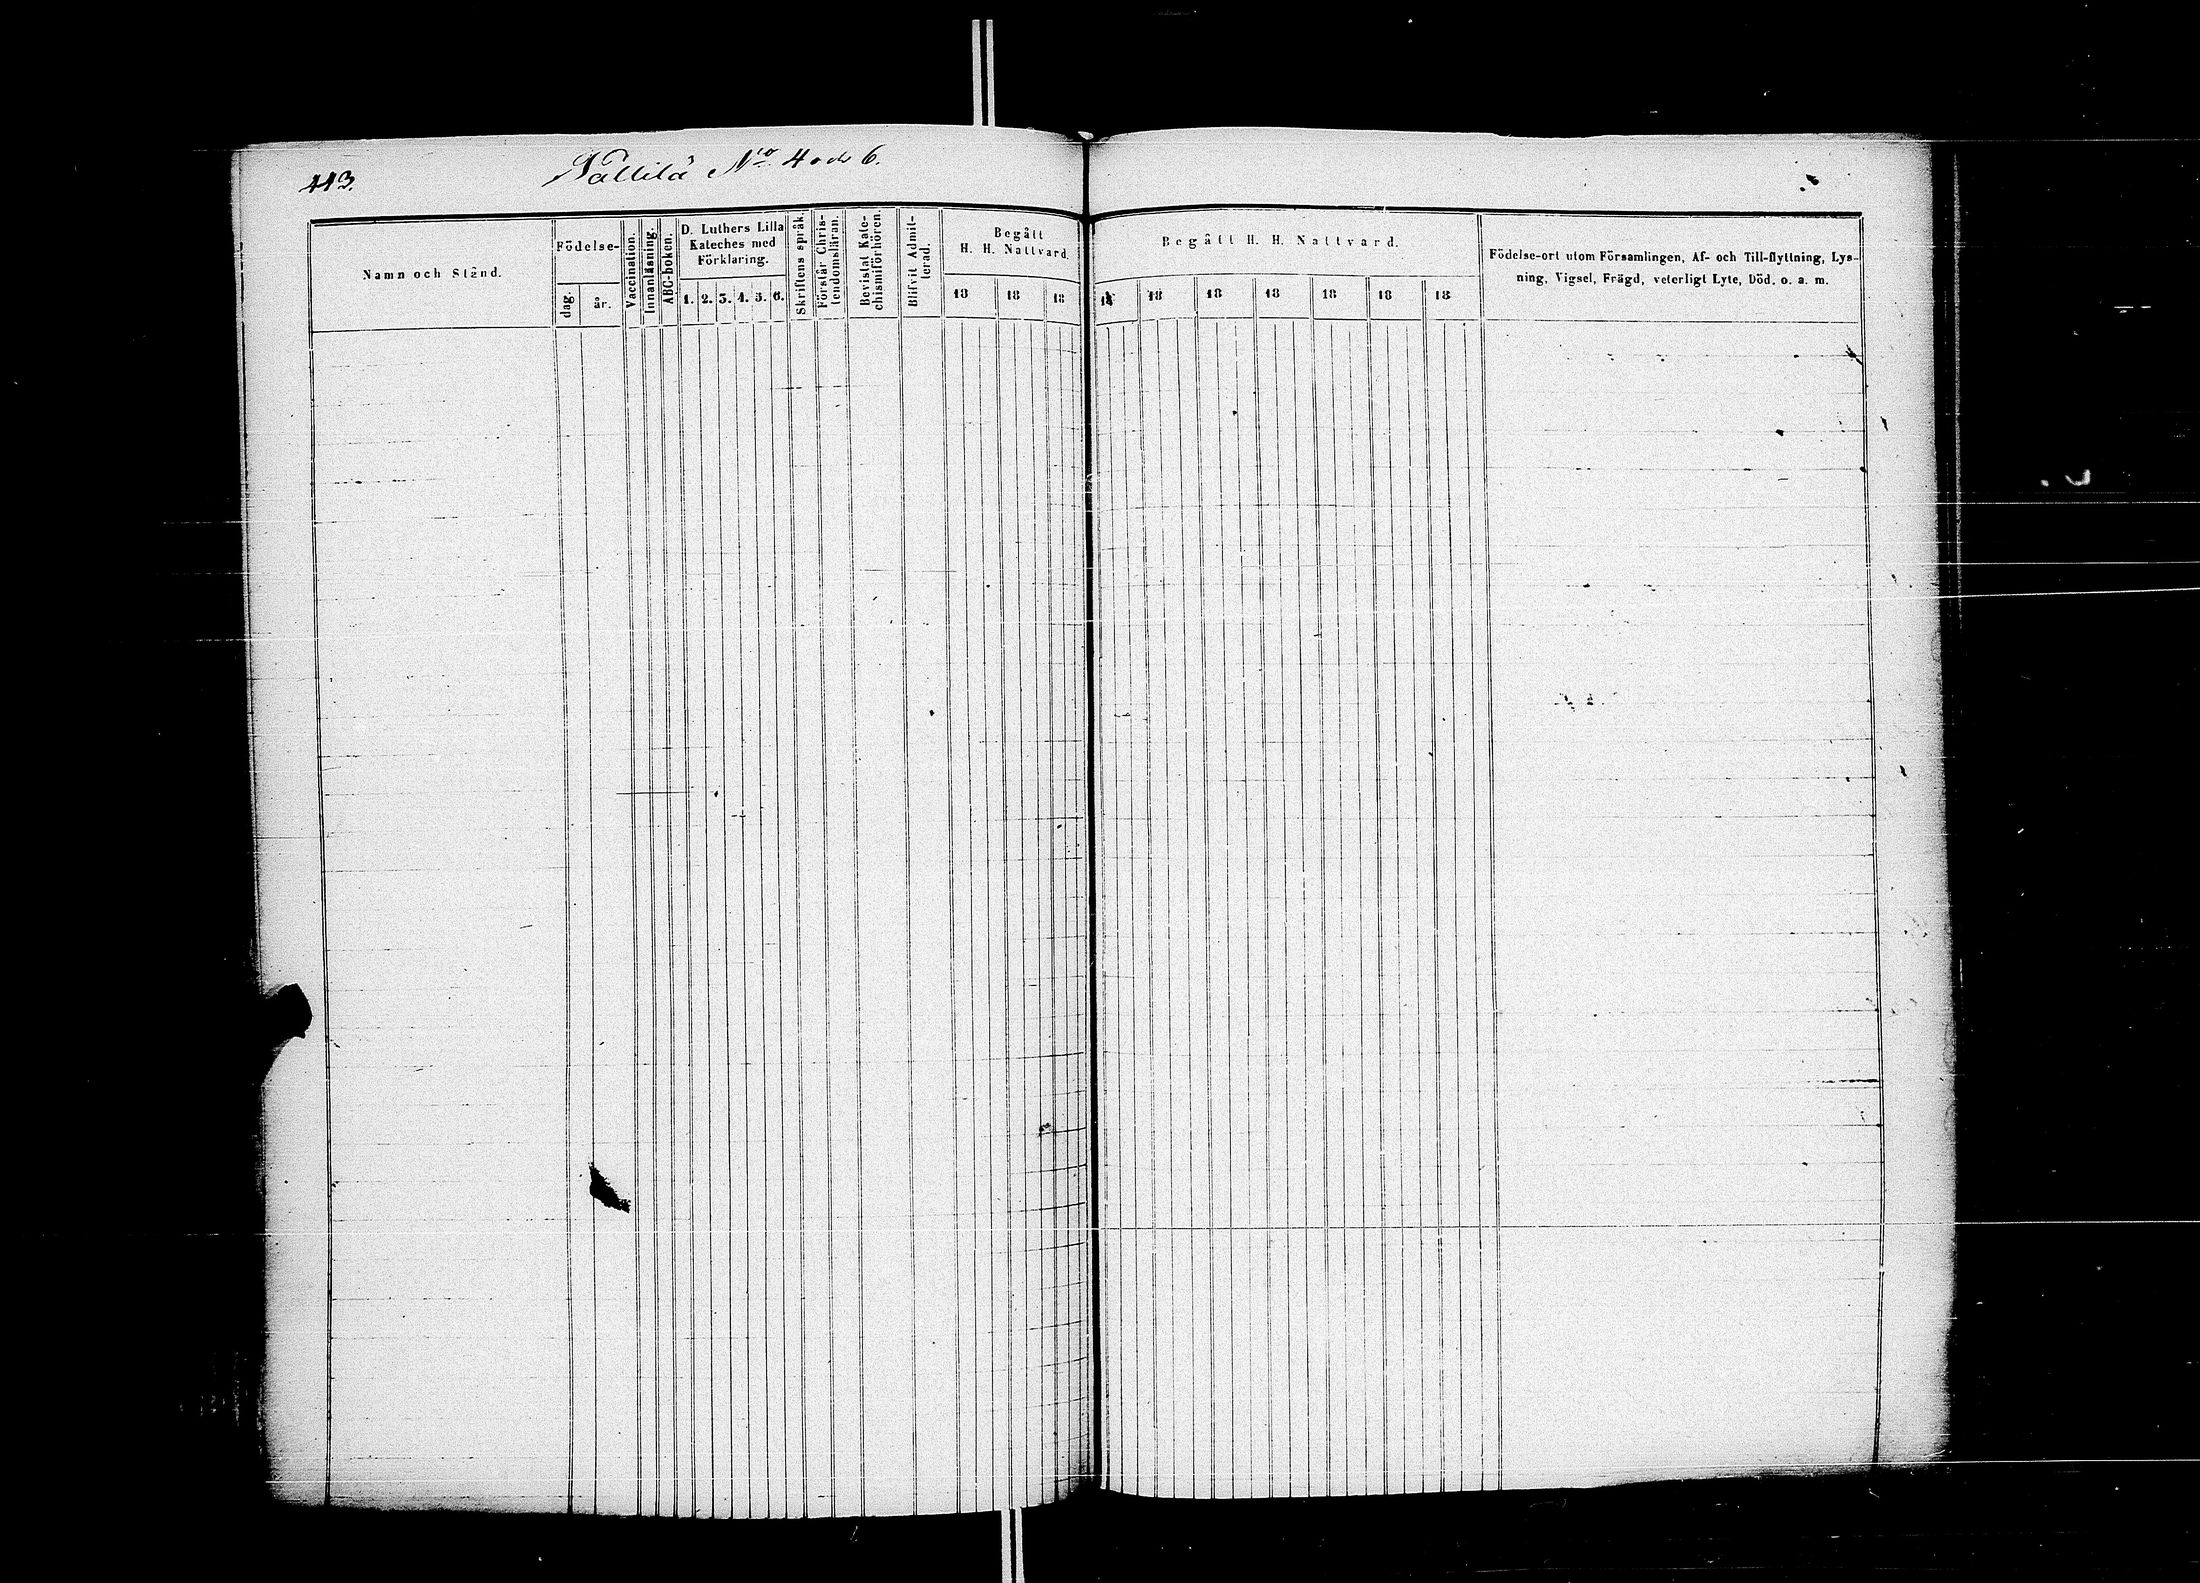 443.
Nallilä N:ro 4 och 6.
Namn och Stånd.
Födelse-
dag.
år.
Vaccination.
Innanläsning.
ABC-boken.
D. Luthers Lilla
Kateches med
Förklaring.
1. 2. 3. 4. 5. 6.
Skriftens språk.
Förstår Chris-
tendomsläran.
Bevistat Kate-
chismiförhören.
Blifvit Admit-
terad.
Begått
H. H. Nattvard.
18 18 18
Begått H. H. Nattvard.
18 18 18 18 18 18 18
Födelse-ort utom Församlingen, Af- och Till-flyttning, Lys-
ning, Vigsel, Frägd, veterligt Lyte, Död. o. a. m.